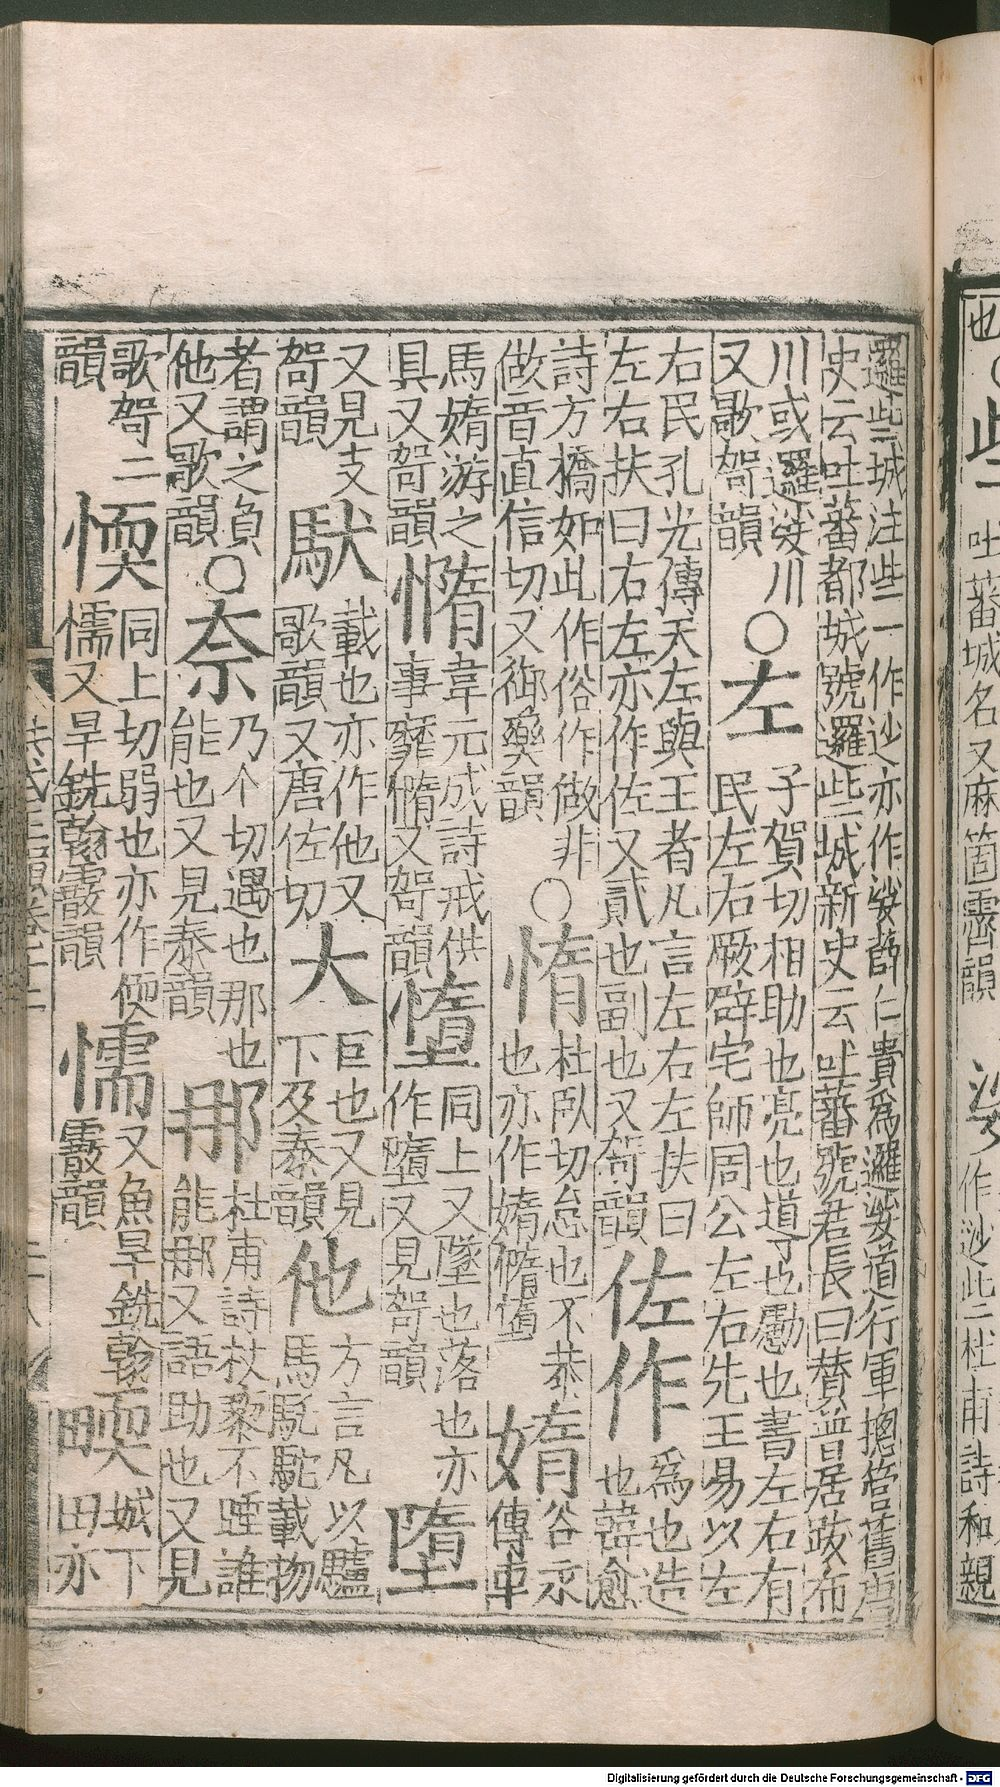 邏些城注些一作逤亦作娑薛仁貴為邏娑道行軍摠管舊唐
史云吐蕃都城號邏些城新史云吐蕃號君長曰贊普居跋布
川或邏娑川〇左子賀切相助也亮也道也勴也書左右有
又歌哿韻民左右厥辟宅師周公左右先王易以左
右民孔光傳天左與王者凡言左右左扶曰
左右扶曰右左亦作佐又貳也副也又哿韻佐作為也造
也韓愈
詩方橋如此作俗作做非〇惰杜臥切怠也不恭
做音直信切又御藥韻也亦作媠憜墮媠谷永
傳車
馬媠游之憜韋元成詩戒供
具又哿韻事靡憜又哿韻墮同上又墜也落也亦
作墮又見哿韻墮
又見支
哿韻馱載也亦作他又
歌韻又唐佐切大巨也又見
下及泰韻他方言凡以驢
馬駝載物
者謂之負
他又歌韻〇奈乃个切遇也那也
能也又見泰韻那杜甫詩杖藜不睡誰
能那又語助也又見
歌哿二
韻愞同上切弱也亦作偄
懦又旱銑翰霰韻懦又魚旱銑翰
霰韻畂城下
田亦
也〇些吐蕃城名又麻箇霽韻
娑作逤些二杜甫詩和親
Digitalisierung gefördert durch die Deutsche Forschungsgemeinschaft - DFG